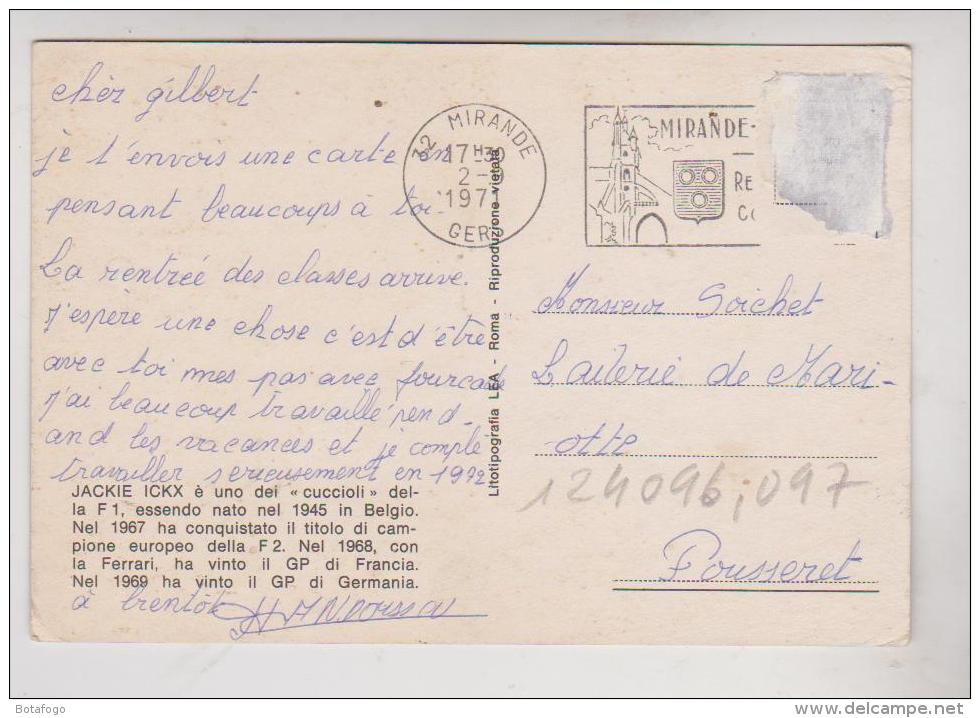 chèr gilbert
je t'envois une carte en
pensant beaucoups à toi.
La rentrée des classes arrive.
J'espère une chose c'est d'être
avec toi mes pas avec fourcade
J'ai beaucoup travaillé pend-
and les vacances et je compte
travailler serieusement en 1972
JACKIE ICKX è uno dei «cuccioli» del-
la F 1, essendo nato nel 1945 in Belgio.
Nel 1967 ha conquistato il titolo di cam-
pione europeo della F 2. Nel 1968, con
la Ferrari, ha vinto il GP di Francia.
Nel 1969 ha vinto il GP di Germania.
à bientôt
Litotipografia LEA - Roma - Riproduzione vietata
32 MIRANDE
17H30
2-9
1971
GERS
MIRANDE-
RE
CO
Monsieur Soichet
Laiterie de Mari-
otte
124096;097
Pousseret
Botafogo
http://www.delcampe.net